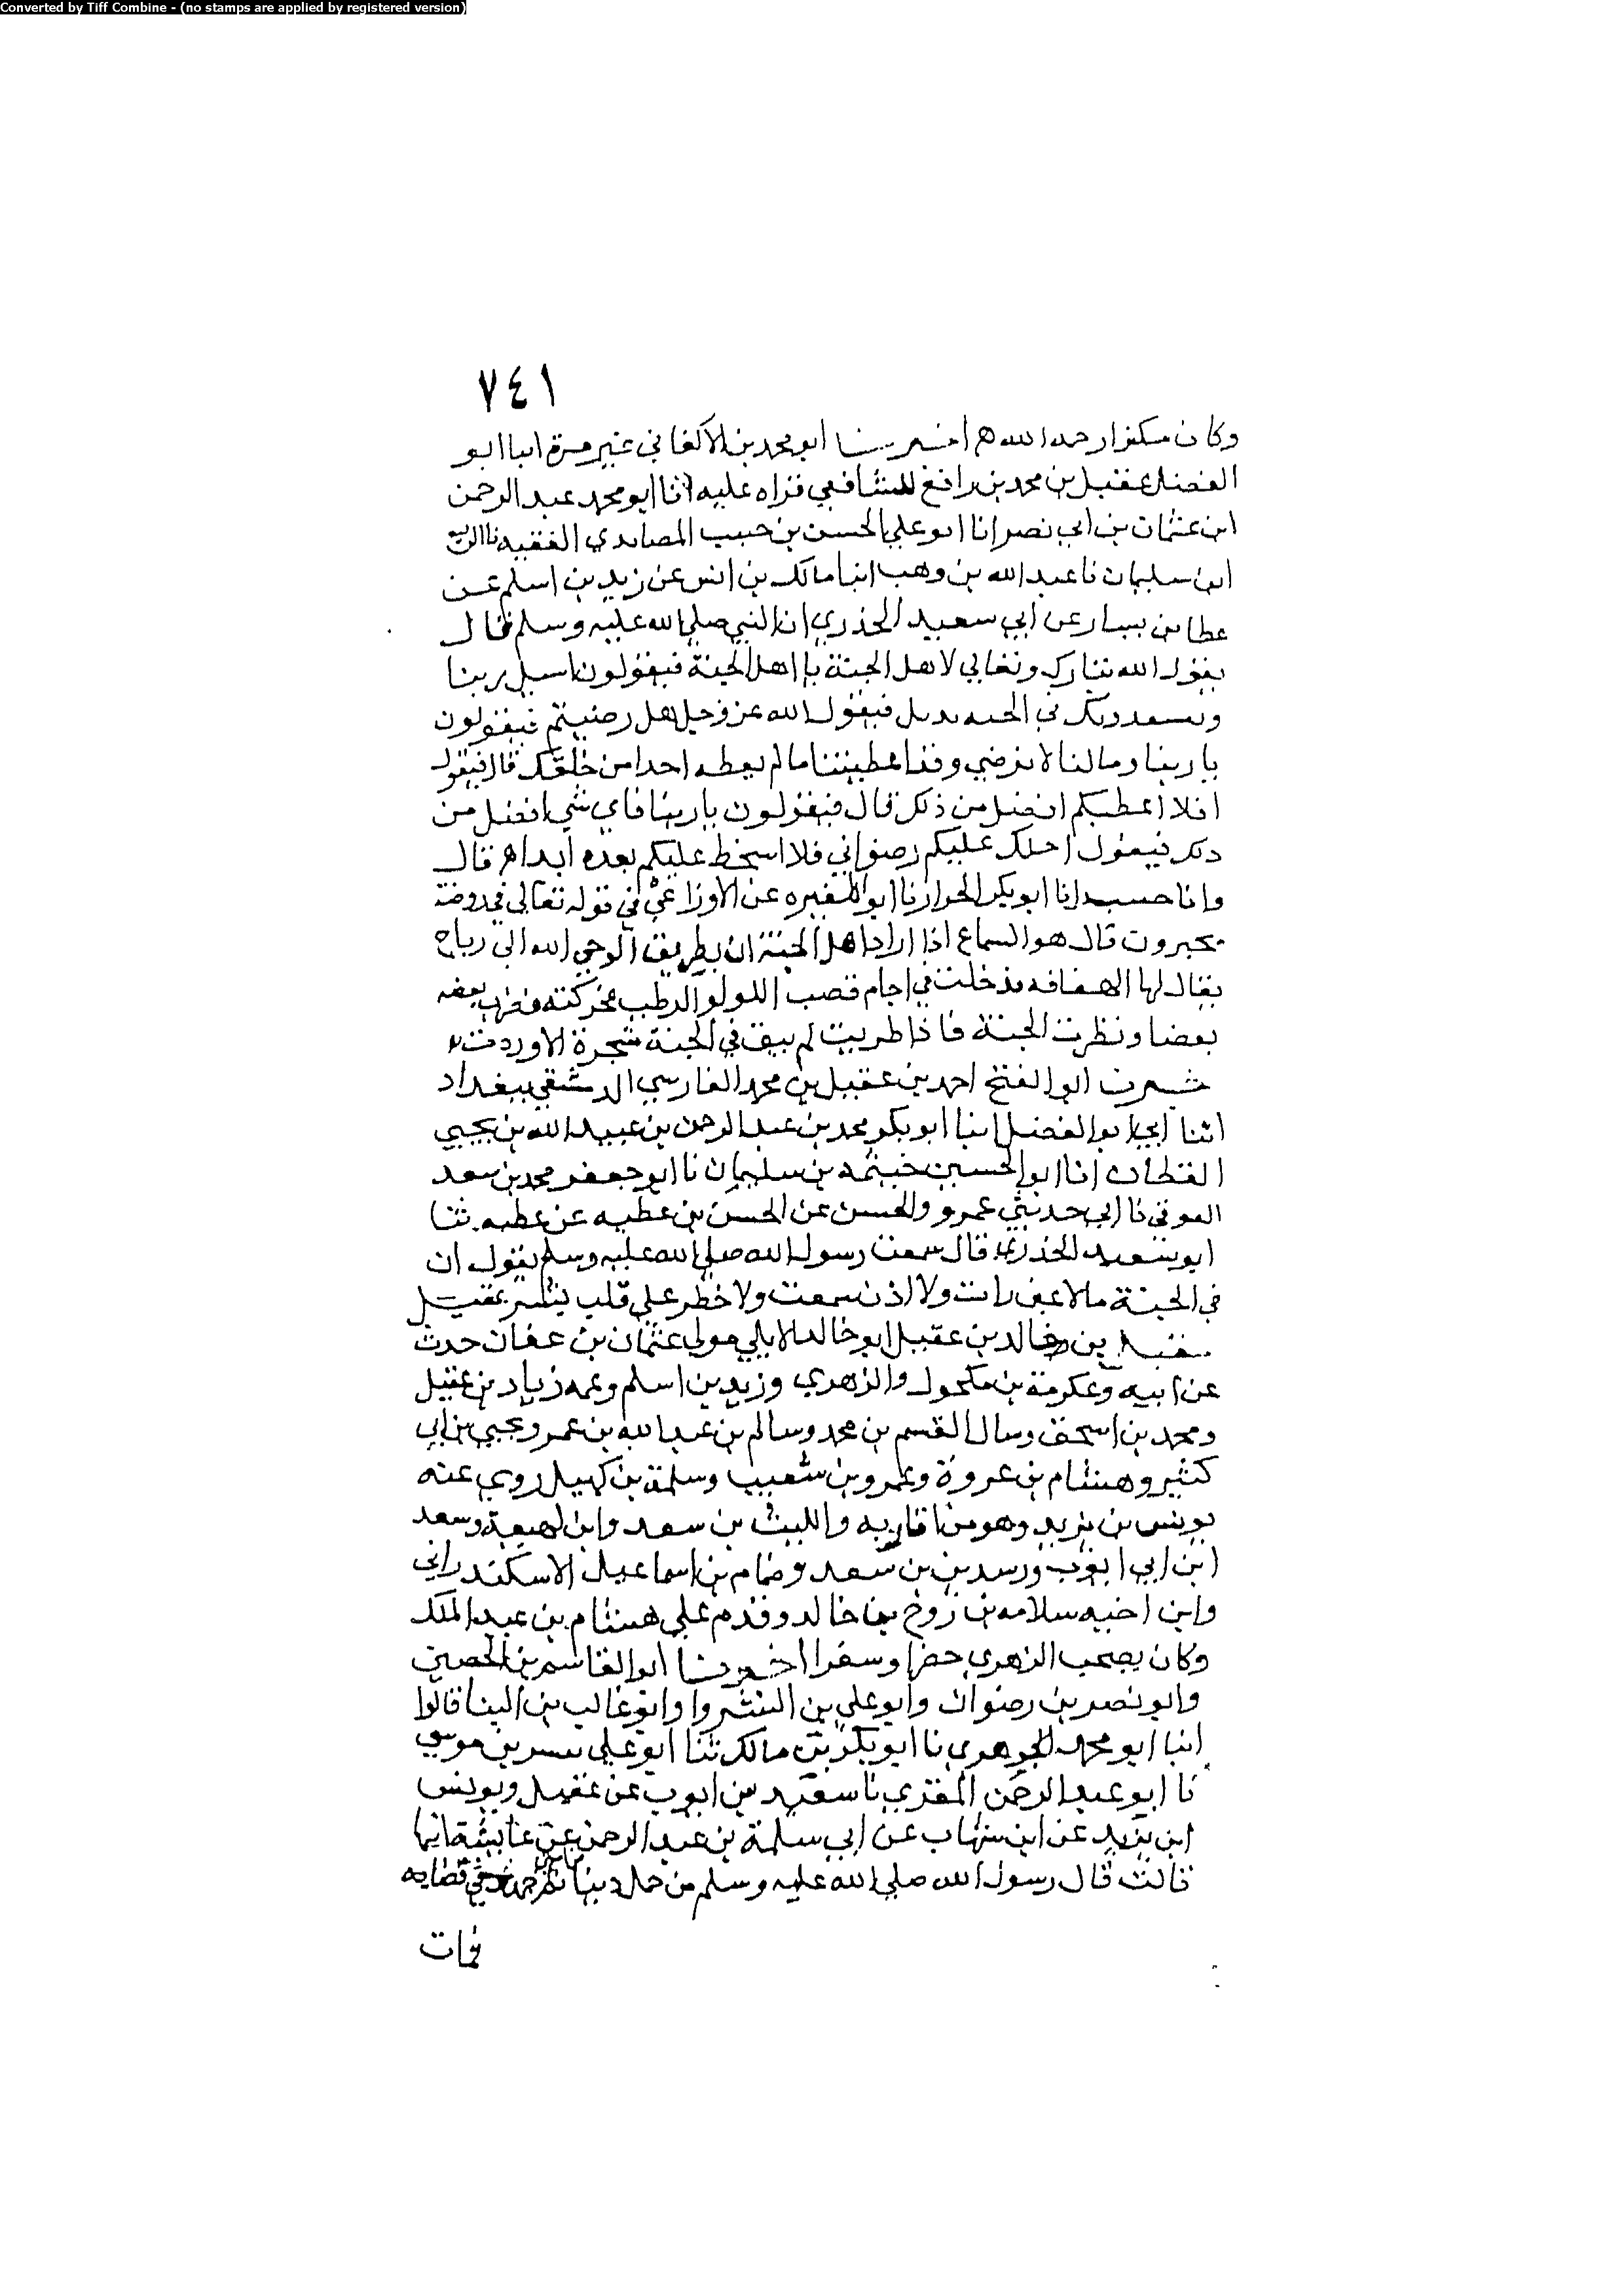 Converted by Tiff Combine - (no stamps are applied by registered version)
٧٤١
وكان مكثرا رحمه الله اخبرنا ابو محمد بن الاكفاني غير مرة انبا ابو
الفضل عقيل بن محمد بن رافع الشافعي قراه عليه انا ابو محمد عبد الرحمن
ابن عثمان بن ابي نصر انا ابو علي الحسن بن حبيب الفقيه نا الربيع
ابن سليمان نا عبد الله بن وهب انبا مالك بن انس عن زيد بن اسلم عن
عطا بن يسار عن ابي سعيد الخدري ان النبي صلي الله عليه وسلم قال
يقول الله تبارك وتعالي لاهل الجنة يا اهل الجنة فيقولون ربنا
وسعديك في فيقول الله عز وجل هل رضيتم فيقولون
يا ربنا وما لنا لا نرضي وقد اعطيتنا ما لم يعطه احدا من خلقك قال فيقول
افلا اعطيكم افضل من ذلك قال فيقولون يا ربنا فاي شي افضل من
ذلك فيقول احلك عليكم رضواني فلا اسخط عليكم بعده ابدا قال
وانا انا ابو بكر نا ابو المغيره عن الاوزاعي في قوله تعالي في روضة
يحبرون قال هو السماع اذا اراد اهل الجنة ان الله الي رياح
يقال لها الهفافه فدخلت في اجام قصب اللولو الرطب فحركته فضرب بعضه
بعضا الجنة فاذا طربت لم يبق في الجنة شجرة الا وردت
ابو الفتح احمد بن عقيل بن محمد الفارسي الدمشقي ببغداد
انبا ابي ابو الفضل انبا ابو بكر محمد بن عبد الرحمن بن عبيد الله بن يحيي
القطان انا ابو الحسين خيثمه بن سليمان نا ابو جعفر محمد بن سعد
العوفي نا ابي حدثني عمرو والحسن عن الحسن بن عطيه عن عطيه ثنا
ابو سعيد الخدري قال سمعت رسول الله صلي الله عليه وسلم يقول ان
في الجنة مالا عين رات ولا اذن سمعت ولا خطر علي قلب بشر عقيل
بن خالد بن عقيل ابو خالد الايلي مولي عثمان بن عفان حدث
عن ابيه وعكرمة بن مكحول والزهري وزيد بن اسلم وعمه زياد بن عقيل
ومحمد بن اسحق وسال القسم بن محمد وسالم بن عبد الله بن عمر ويحيي بن ابي
كثير وهشام بن عروة وعمرو بن شعيب وسلمة بن كهيل روي عنه
يونس بن يزيد وهو من اقاربه والليث بن سعد وابن لهيعة وسعد
ابن ابي ايوب ورسدين بن سعد وضمام بن اسماعيل الاسكندراني
وابن اخيه سلامه بن روح بن خالد وقدم علي هشام بن عبد الملك
وكان يصحب الزهري حضرا وسفرا اخبرنا ابو القاسم بن الحصين
وابو نصر بن رضوان وابو علي بن وابو غالب بن البنا قالوا
انبا ابو محمد الجوهري نا ابو بكر بن مالك ثنا ابو علي بسر بن موسي
نا ابو عبد الرحمن المقري نا سعيد بن ايوب عن عقيل ويونس
ابن يزيد عن ابن شهاب عن ابي سلمة بن عبد الرحمن عن عايشة انها
قالت قال رسول الله صلي الله عليه وسلم من حمل دينا في قضايه
فمات